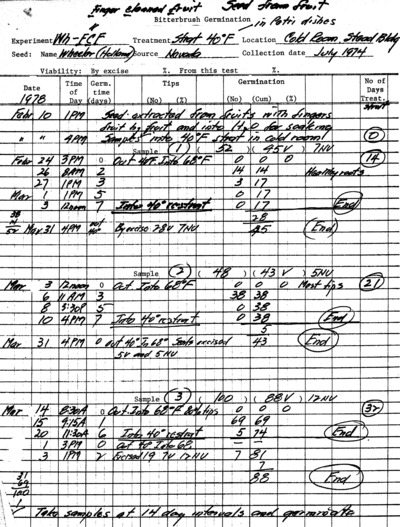 Finger cleaned fruit Seed from fruit
Bitterbrush Germination in Petri dishes
Experiment Wh-FCF Treatment Strat 40°F Location Cold Room, Stead Bldg
Seed: Name Wheeler (Holland) Source Nevada Collection date July 1974
Viability: By excise % From this test %
Date Time of Day Germ. time (days) Tips (No) (%) Germination (No) (Cum) (%) No of Days Treat.
1978 Strat
Febr 10 1PM Seed extracted from fruits with fingers
fruit by fruit and into H2O for soaking
" " 4PM Samples into 40°F strat in cold room 0
Sample (1) ( 52 ( 45V ) 7NU
Febr 24 3PM 0 Out 40°F Into 68°F 0 0 0 14
26 8AM 2 14 14 Healthy roots
27 1PM 3 3 17
Mar 1 1PM 5 0 17
3 12noon 7 Into 40° restrat 0 17 End
28
Mar 31 4PM out 40° By excise 28V 7NU 45 (End)
Sample (2) ( 48 ( 43V ) 5NU
Mar 3 12noon 0 Out Into 68°F 0 0 0 Most tips 21
6 11AM 3 38 38
8 3:30P 5 0 38
10 4PM 7 Into 40° restrat 0 38 End
5
Mar 31 4PM 0 out 40° In 68° Seeds excised 43 End
5V and 5NU
Sample (3) ( 100 ( 88V ) 12NU
Mar 14 8:30A 0 Out Into 68°F tips 0 0 0 32
15 9:15A 1 69 69
20 11:30A 6 Into 40° restrat 5 74 End
1 3PM 0 Out 40° Into 68
3 1PM 2 Excised 19 7V 12NU 7 81
7
88 End
Take samples at 14 day intervals and germinate